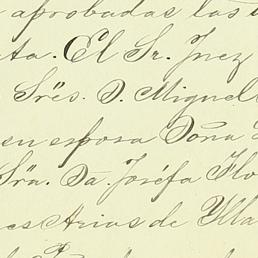 aprobadas las
ta. El Sr. Juez
Srës. D. Miguel
en esposa Doña
Sra. Da. Joséfa Flo
es Arias de Villa